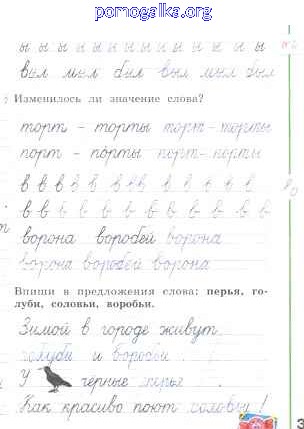 pomogalka.org
ы ы ы ы ы ы ы ы ы ы ы ы ы ы
был мыл был выл мыл был
Изменилось ли значение слова?
торт – торты торт – торты
порт – порты порт – порты
в в в в в в в в в в в в в
в в в в в в в в в в в в в
ворона воробей ворона
ворона воробей ворона
Впиши в предложения слова: перья, го-
луби, соловьи, воробьи.
Зимой в городе живут
голуби и воробьи .
У чёрные перья .
Как красиво поют соловьи !
3